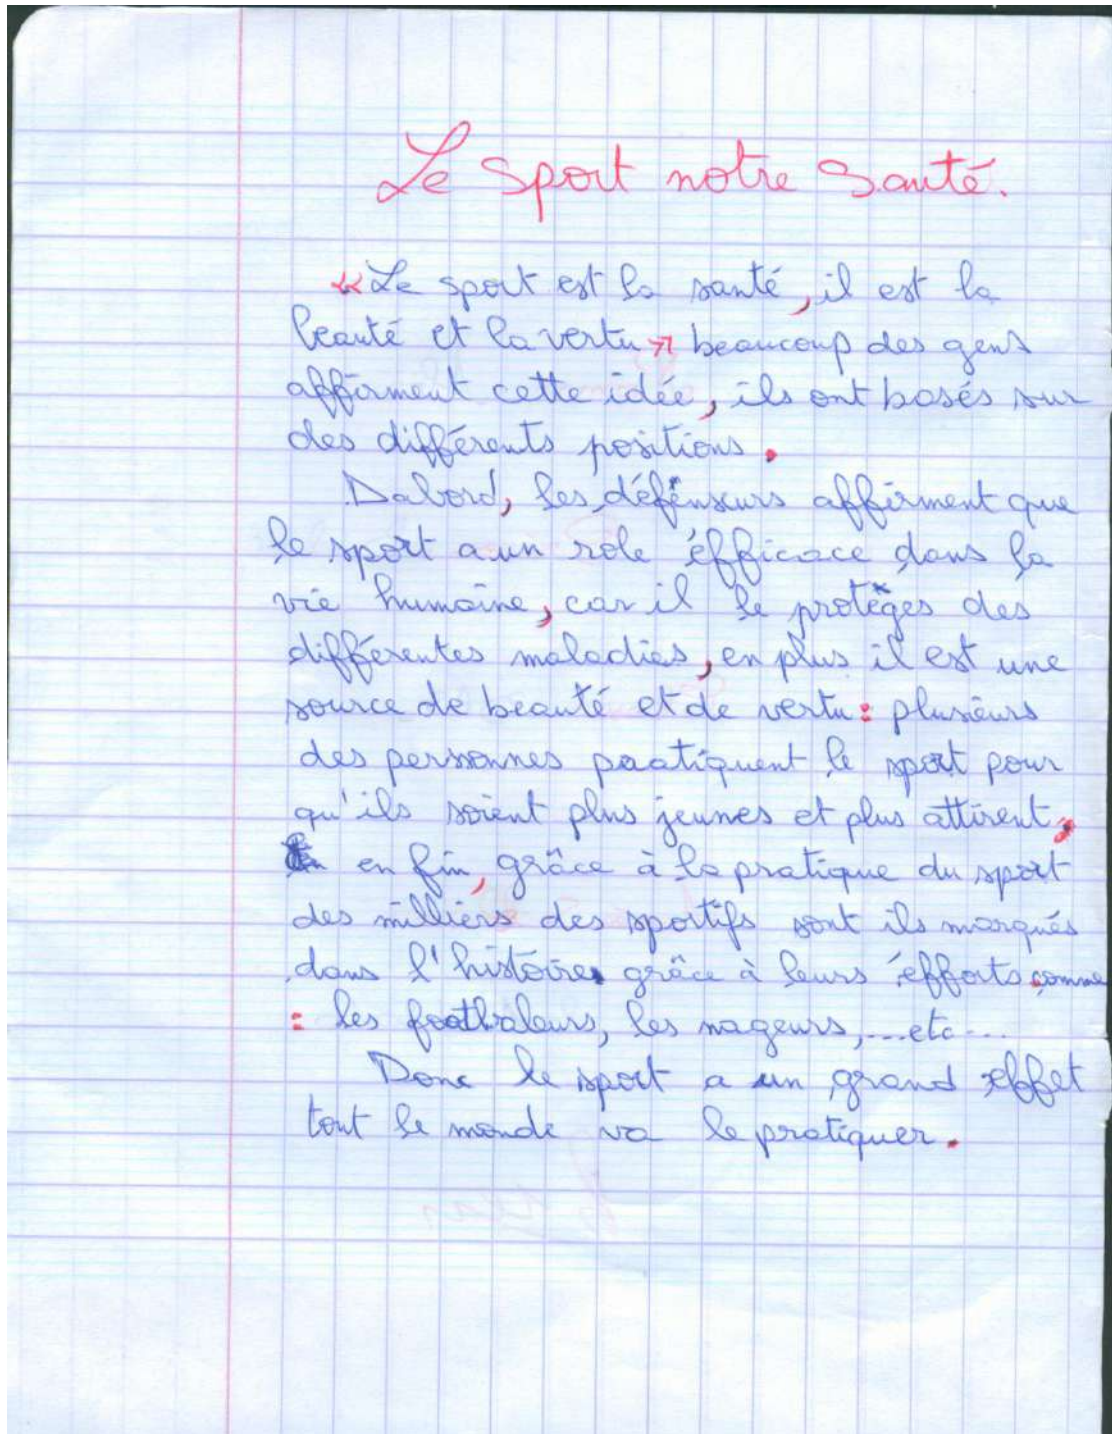 Le Sport notre Santé.
« Le sport est la santé, il est la
beauté et la vertu » beaucoup des gens
affirment cette idée, ils ont basés sur
des différents positions.
Dabord, les défénseurs affirment que
le sport a un role éfficace dans la
vie humaine, car il le protèges des
différentes maladies, en plus il est une
source de beauté et de vertu : plusieurs
des personnes paatiquent le sport pour
qu'ils soient plus jeunes et plus attirent,
en fin, grâce à la pratique du sport
des milliers des sportifs sont ils marqués
dans l'histoire grâce à leurs éfforts comme
: les footbaleurs, les nageurs, ... etc ...
Donc le sport a un grand effet
tout le monde va le pratiquer.